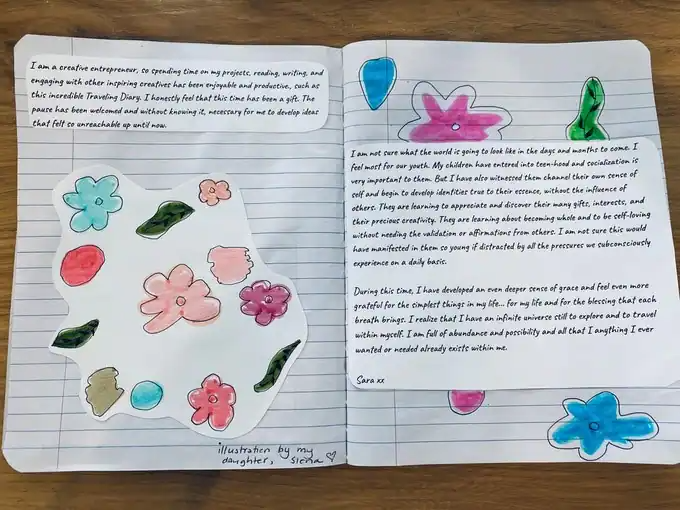 I am a creative entrepreneur, so spending time on my projects, reading, writing, and
engaging with other inspiring creatives has been enjoyable and productive, such as
this incredible Traveling Diary. I honestly feel that this time has been a gift. The
pause has been welcomed and without knowing it, necessary for me to develop ideas
that felt so unreachable up until now.
illustration by my
daughter, Siena
I am not sure what the world is going to look like in the days and months to come. I
feel most for our youth. My children have entered into teen-hood and socialization is
very important to them. But I have also witnessed them channel their own sense of
self and begin to develop identities true to their essence, without the influence of
others. They are learning to appreciate and discover their many gifts, interests, and
their precious creativity. They are learning about becoming whole and to be self-loving
without needing the validation or affirmations from others. I am not sure this would
have manifested in them so young if distracted by all the pressures we subconsciously
experience on a daily basis.
During this time, I have developed an even deeper sense of grace and feel even more
grateful for the simplest things in my life... for my life and for the blessing that each
breath brings. I realize that I have an infinite universe still to explore and to travel
within myself. I am full of abundance and possibility and all that I anything I ever
wanted or needed already exists within me.
Sara xx